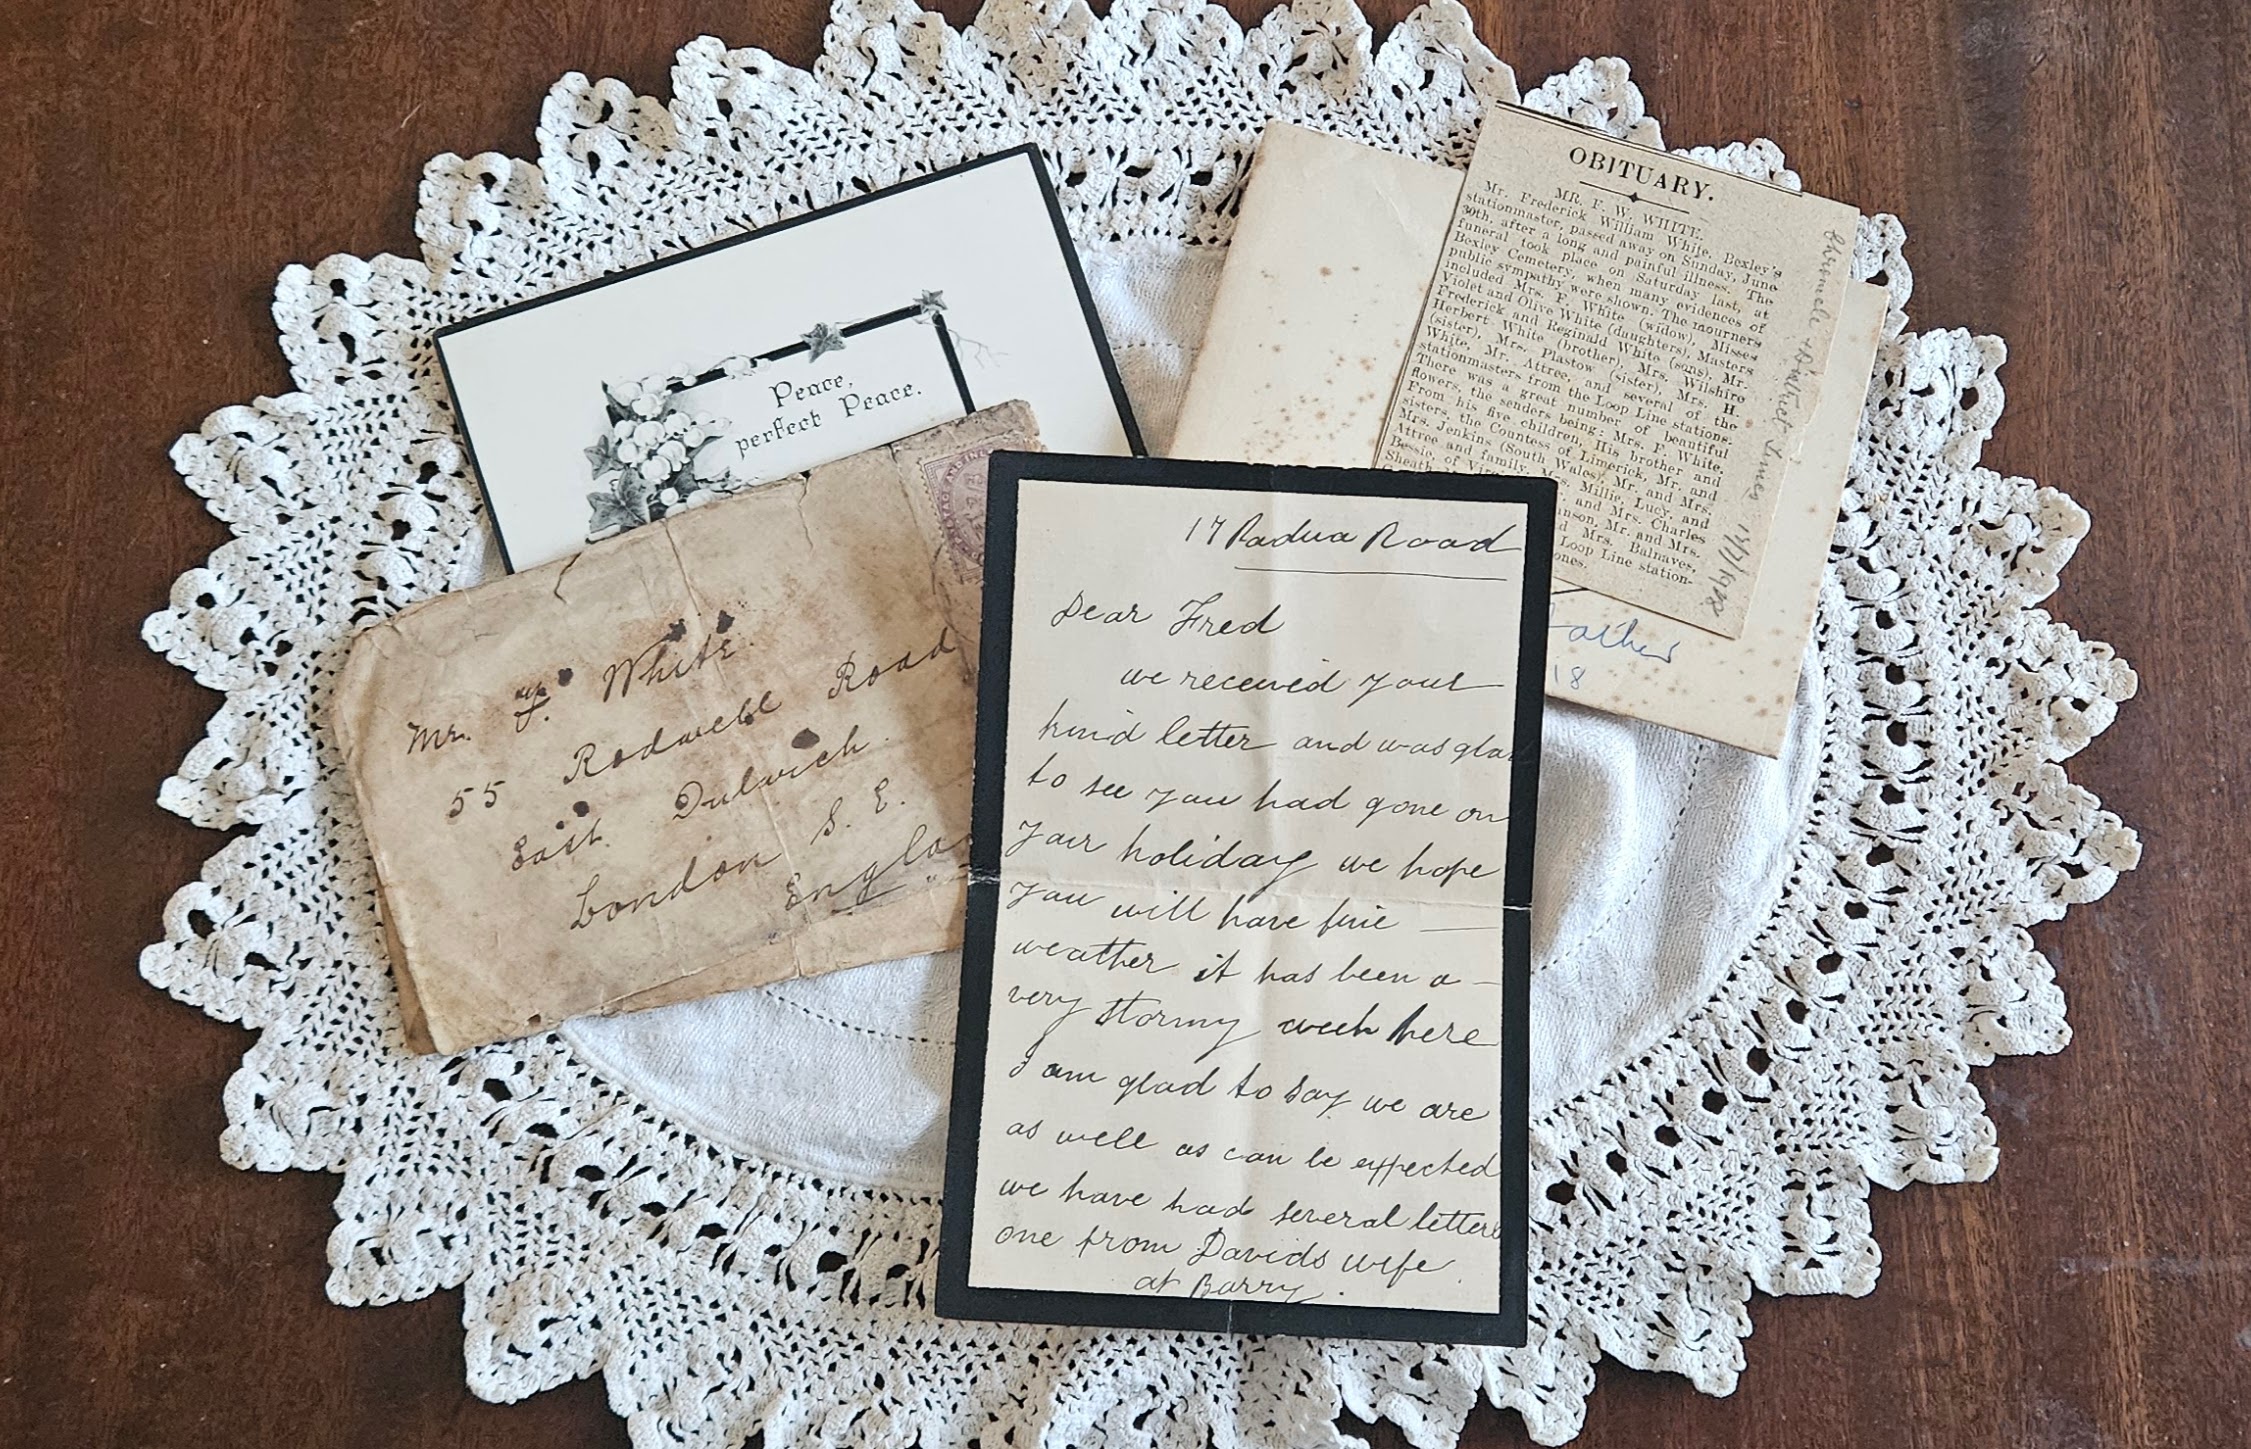 Peace,
perfect Peace.
Mr. F. White.
55 Rodwell Road
East Dulwich.
London S. E.
17 Padua Road
Dear Fred
we received your
kind letter and was
to see you had gone on
your holiday we hope
you will have fine
weather it has been a
very stormy week here
I am glad to say we are
as well as can be expected
we have had several letters
one from Davids wife
at Barry.
OBITUARY.
MR. F. W. WHITE.
Mr. Frederick William White, Bexley's
stationmaster, passed away on Sunday, June
30th, after a long and painful illness. The
funeral took place on Saturday last, at
Bexley Cemetery, when many evidences of
public sympathy were shown. The mourners
included Mrs. F. White (widow), Misses
Violet and Olive White (daughters), Masters
Frederick and Reginald White (sons), Mr.
Herbert White (brother), Mrs. Wilshire
(sister), Mrs. Plastow (sister), Mrs. H.
White, Mr. Attree, and several of the
stationmasters from the Loop Line stations.
There was a great number of beautiful
flowers, the senders being: Mrs. F. White,
From his five children, His brother and
sisters, the Countess of Limerick, Mr. and
Mrs. Jenkins (South Wales), Mr. and Mrs.
Attree and family, Millie, Lucy, and
Bessie, of and Mrs. Charles
Mr. and Mrs.
Mrs. Balnaves,
Loop Line station-
District Times
18